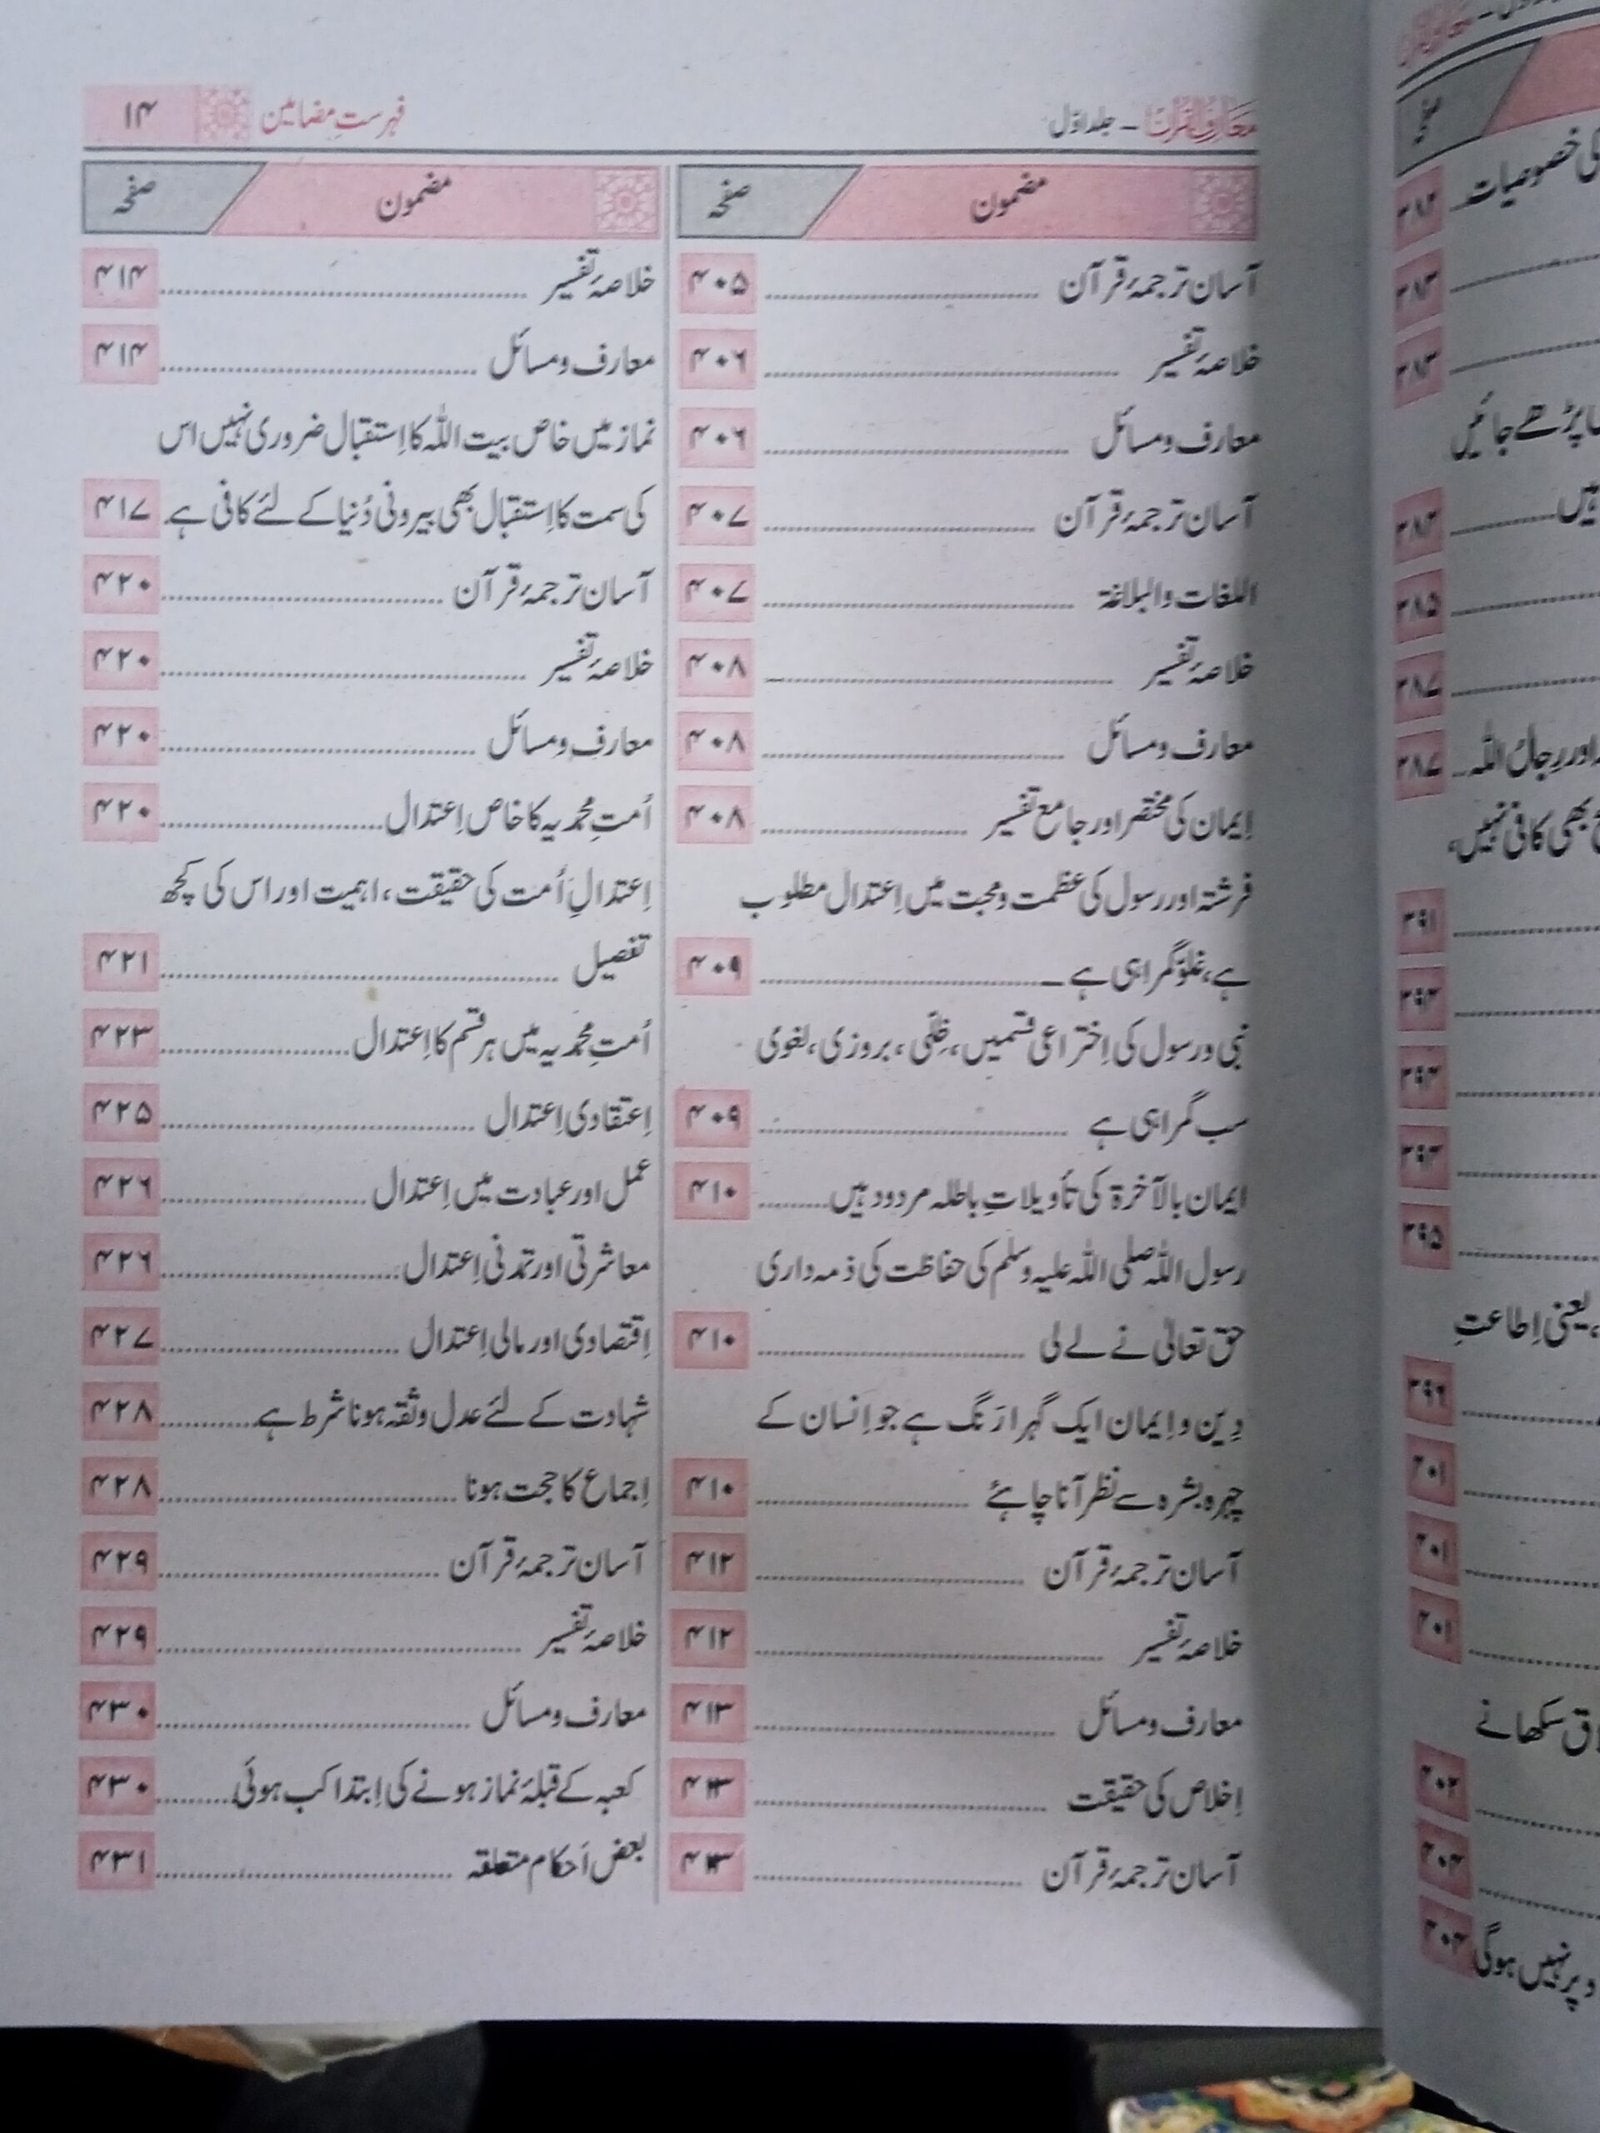 معارف القرآن – جلد اوّل
فہرستِ مضامین
۱۴
مضمون صفحہ
آسان ترجمۂ قرآن ۴۰۵
خلاصۂ تفسیر ۴۰۶
معارف و مسائل ۴۰۶
آسان ترجمۂ قرآن ۴۰۷
اللغات والبلاغۃ ۴۰۷
خلاصۂ تفسیر ۴۰۸
معارف و مسائل ۴۰۸
اِیمان کی مختصر اور جامع تفسیر ۴۰۸
فرشتہ اور رسول کی عظمت و محبت میں اِعتدال مطلوب
ہے، غلوّ گمراہی ہے ۴۰۹
نبی و رسول کی اِختراعی قسمیں، ظِلّی، بروزی، لغوی
سب گمراہی ہے ۴۰۹
ایمان بالآخرۃ کی تأویلاتِ باطلہ مردود ہیں ۴۱۰
رسول اللہ صلی اللہ علیہ وسلم کی حفاظت کی ذمہ داری
حق تعالیٰ نے لے لی ۴۱۰
دِین و اِیمان ایک گہرا رَنگ ہے جو اِنسان کے
چہرہ بشرہ سے نظر آنا چاہئے ۴۱۰
آسان ترجمۂ قرآن ۴۱۲
خلاصۂ تفسیر ۴۱۲
معارف و مسائل ۴۱۳
اِخلاص کی حقیقت ۴۱۳
آسان ترجمۂ قرآن ۴۱۳
مضمون صفحہ
خلاصۂ تفسیر ۴۱۴
معارف و مسائل ۴۱۴
نماز میں خاص بیت اللہ کا اِستقبال ضروری نہیں اس
کی سمت کا اِستقبال بھی بیرونی دُنیا کے لئے کافی ہے ۴۱۷
آسان ترجمۂ قرآن ۴۲۰
خلاصۂ تفسیر ۴۲۰
معارف و مسائل ۴۲۰
اُمتِ محمدیہ کا خاص اِعتدال ۴۲۰
اِعتدالِ اُمت کی حقیقت، اہمیت اور اس کی کچھ
تفصیل ۴۲۱
اُمتِ محمدیہ میں ہر قسم کا اِعتدال ۴۲۳
اِعتقادی اِعتدال ۴۲۵
عمل اور عبادت میں اِعتدال ۴۲۶
معاشرتی اور تمدنی اِعتدال ۴۲۶
اِقتصادی اور مالی اِعتدال ۴۲۷
شہادت کے لئے عدل و ثقہ ہونا شرط ہے ۴۲۸
اِجماع کا حجت ہونا ۴۲۸
آسان ترجمۂ قرآن ۴۲۹
خلاصۂ تفسیر ۴۲۹
معارف و مسائل ۴۳۰
کعبہ کے قبلۂ نماز ہونے کی اِبتدا کب ہوئی ۴۳۰
بعض اَحکام متعلقہ ۴۳۱
کی خصوصیات ۳۸۲
۳۸۳
۳۸۳
پڑھے جائیں
ہیں ۳۸۴
۳۸۵
۳۸۷
اور رِجالُ اللہ ۳۸۷
بھی کافی نہیں،
۳۹۱
۳۹۳
۳۹۳
۳۹۳
۳۹۵
، یعنی اِطاعتِ
۳۹۶
۴۰۱
۴۰۱
۴۰۱
سکھانے
۴۰۲
۴۰۳
پر نہیں ہوگی ۴۰۳